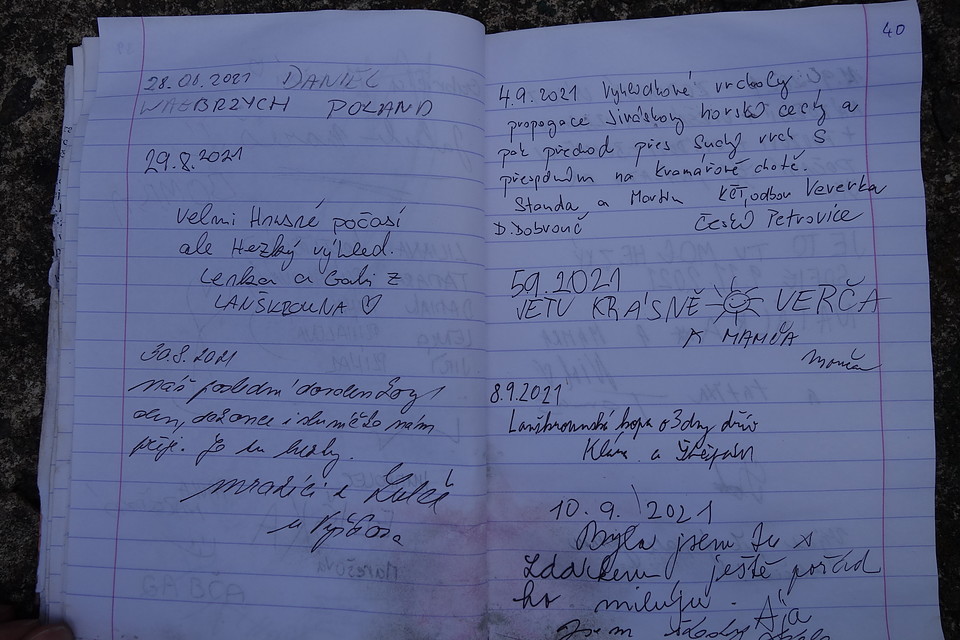 28.08.2021 DANIEL
WAŁBRZYCH POLAND
29.8.2021
Velmi Hnusné počasí
ale Hezký výhled.
Lenka a Gabi z
LANŠKROUNA ♡
30.8.2021
náš poslední
den, i sluníčko nám
přeje. Je tu hezky.
mrazíci z
u
40
4.9.2021 Vyhlídkové vrcholy
propagace Jiráskovy horské cesty a
pak přechod přes Suchý vrch s
přespáním na Kramářově chatě.
Standa a Martin KČT, odbor Veverka
D. Dobrouč České Petrovice
5.9.2021
JE TU KRÁSNĚ VERČA
A MAMČA
Mamča
8.9.2021
Lanškrounská kopa o 3 dny dřív
Klára a Štěpán
10.9. 2021
Byla jsem tu s
Zdeňkem ještě pořád
ho miluju. Ája
Jsem